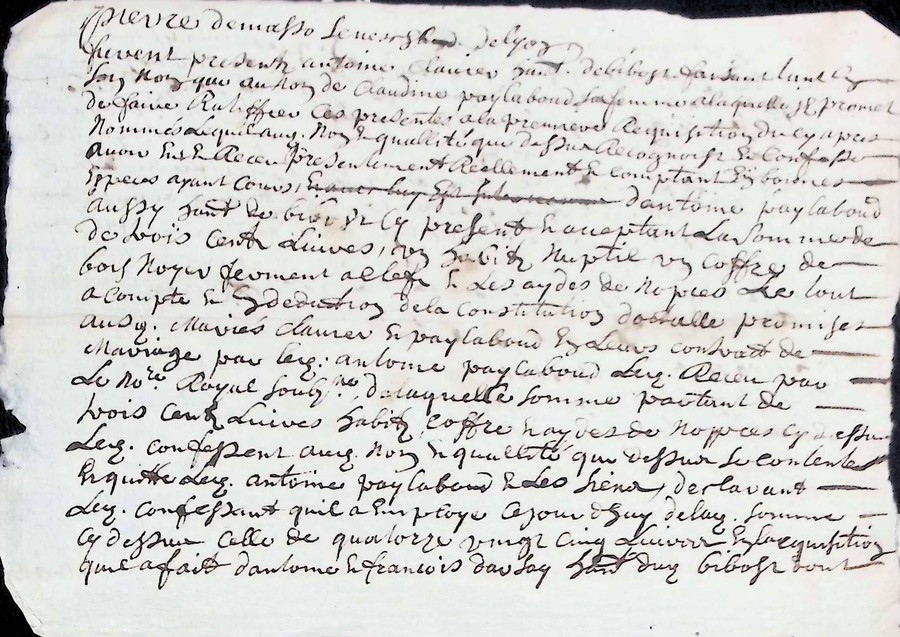 pierre demasso Seneschal de lyon
furent presents antoine Claurer hant. debibost faisant tant en
Son Nom que au Nom de Claudine paylaboud sa femme a laquelle Il promet
de faire Ratiffier Ces presentes a la premiere Requisition du cy apres
Nommés Lequel auq. Nom & quallité que dessus Recognoist & Confesse
auoir Eu & Receu presentement Reellement & comptant En bonnes
Especes ayant Cours dantoine paylaboud
aussy hant de bibost Cy present & acceptant La Somme de
de trois Cents Liures, un habitz Nuptil un Coffre de
bois Noyer fermant a Clefz & Les aydes de Nopces Le tout
a Compte & En deduction de la Constitution dotralle promises
ausq. Mariés Claurer & paylaboud En Leurs Contratt de
Mariage par leq. antoine paylaboud Leq. Receu par
Le No.re Royal Soub.ne, de laquelle Somme partant de
trois Cents Liures habitz Coffre & aydes de Nopces Cy dessus
Leq. Confessent auq. Nom & quallité que dessus Se Contente
& quitte Leq. antoine paylaboud & Les Siens, declarant
Leq. Confessant quil a Employe Ce jour dhuy de laq. Somme
Cy dessus Celle de quatorze vingt Cinq Liures En lacquisition
quil a fait dantoine & francois darsay hant dud bibost dont